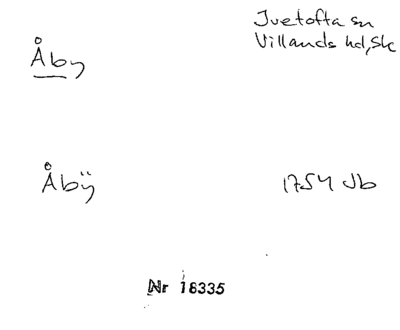 Ivetofta sn
Villands hd, Sk
Åby
Åbÿ
1754 Jb
Nr 18335